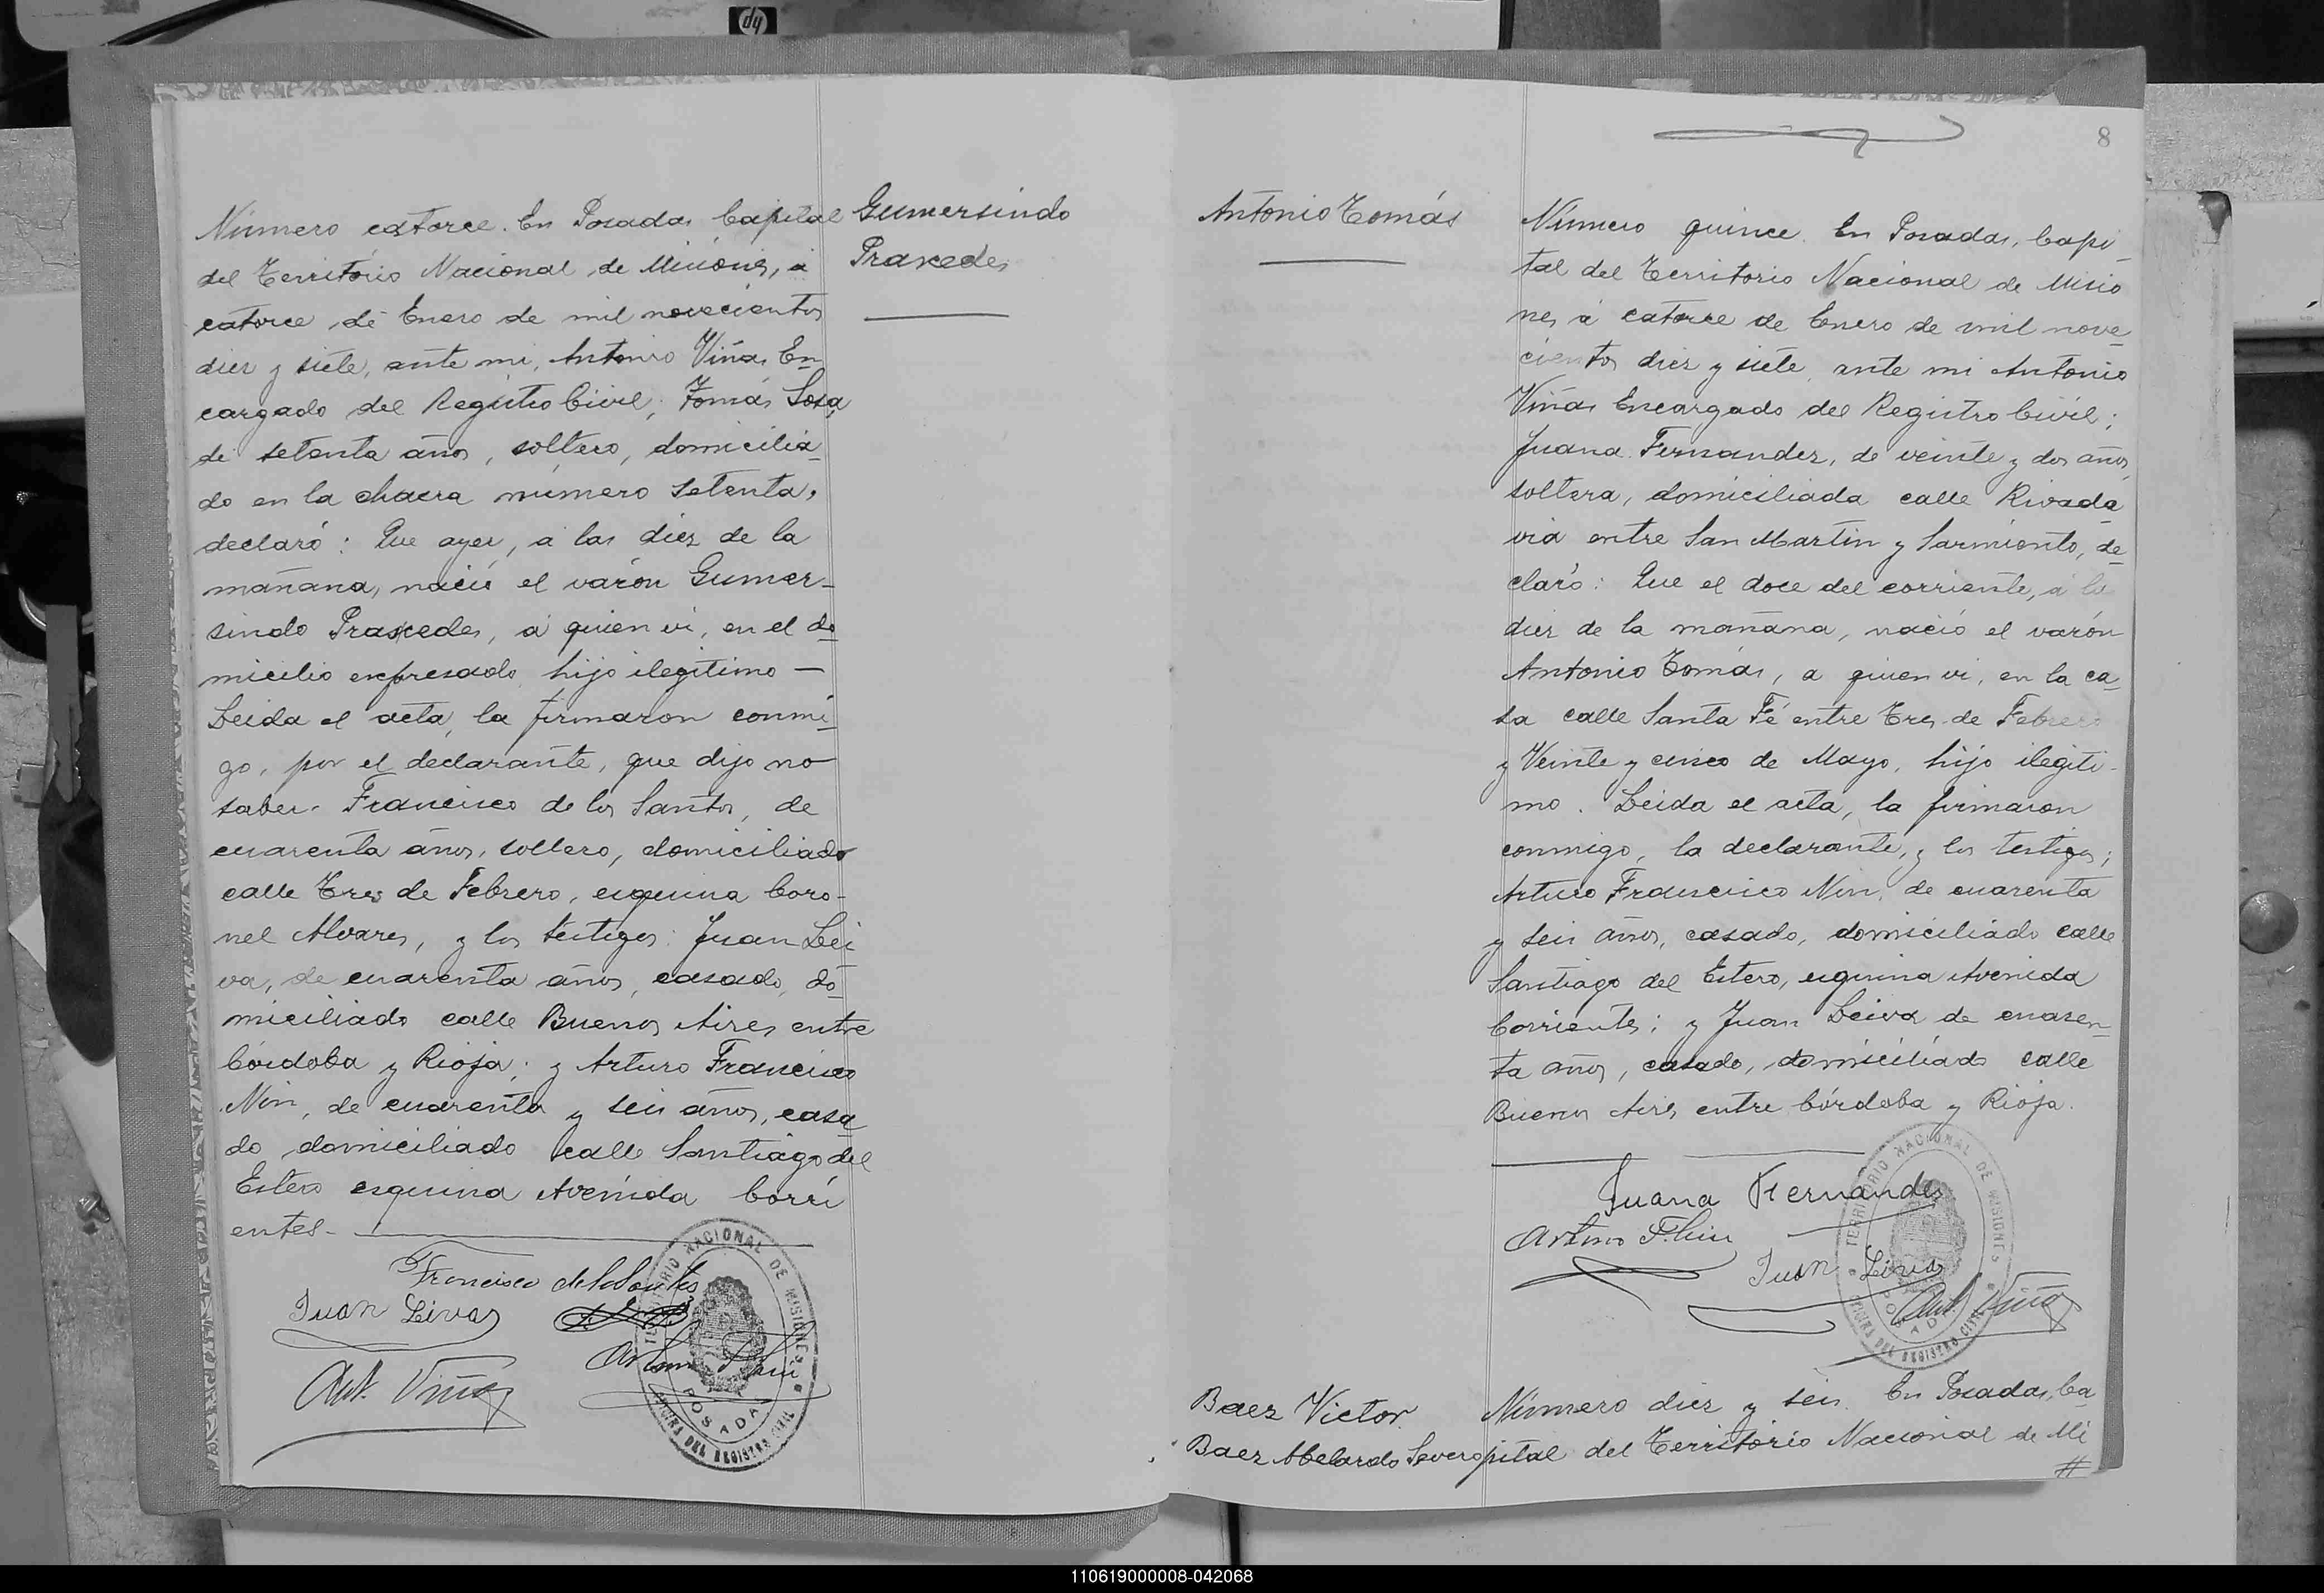 hp
Número catorce. En Posadas Capital
del Territorio Nacional de Misiones, á
catorce de Enero de mil novecientos
diez y siete, ante mi, Antonio Viñas En
cargado del Registro Civil; Tomás Sosa,
de setenta años, soltero, domicilia-
do en la chacra número setenta,
declaró: Que ayer, á las diez de la
mañana, nació el varón Gumer-
sindo Praxedes, á quien vi, en el do
micilio expresado hijo ilegitimo —
Leida el acta, la firmaron conmi
go, por el declarante, que dijo no
saber. Francisco de los Santos, de
cuarenta años, soltero, domiciliado
calle Tres de Febrero, esquina Coro-
nel Alvares, y los testigos: Juan Lei
va, de cuarenta años, casado, do
miciliado calle Buenos Aires entre
Córdoba y Rioja; y Arturo Francisco
Nin, de cuarenta y seis años, casa
do domiciliado calle Santiago del
Estero esquina Avenida Corri
entes.
Francisco de los Santos
Juan Leiva
Arturo F. Nin
Ant. Viñas
TERRITORIO NACIONAL DE MISIONES
POSADAS
OFICINA DEL REGISTRO CIVIL
Gumersindo
Praxedes
8
Antonio Tomás
Número quince. En Posadas, Capi
tal del Territorio Nacional de Misio
nes á catorce de Enero de mil nove-
cientos diez y siete, ante mi Antonio
Viñas Encargado del Registro Civil;
Juana Fernandez, de veinte y dos años
soltera, domiciliada calle Rivada
via entre San Martín y Sarmiento, de
claró: Que el doce del corriente, á las
diez de la mañana, nació el varón
Antonio Tomás, a quien vi, en la ca
sa calle Santa Fé entre Tres de Febrero
y Veinte y cinco de Mayo, hijo ilegiti-
mo. Leida el acta, la firmaron
conmigo, la declarante, y los testigos;
Arturo Francisco Nin, de cuarenta
y seis años, casado, domiciliado calle
Santiago del Estero, esquina Avenida
Corrientes; y Juan Leiva de cuaren
ta años, casado, domiciliado calle
Buenos Aires entre Córdoba y Rioja.
Juana Fernandes
Arturo F. Nin
Juan Leiva
Ant. Viñas
TERRITORIO NACIONAL DE MISIONES
POSADAS
OFICINA DEL REGISTRO CIVIL
Baez Victor
Baez Abelardo Severo
Número diez y seis. En Posadas, Ca
pital del Territorio Nacional de Mi
110619000008-042068